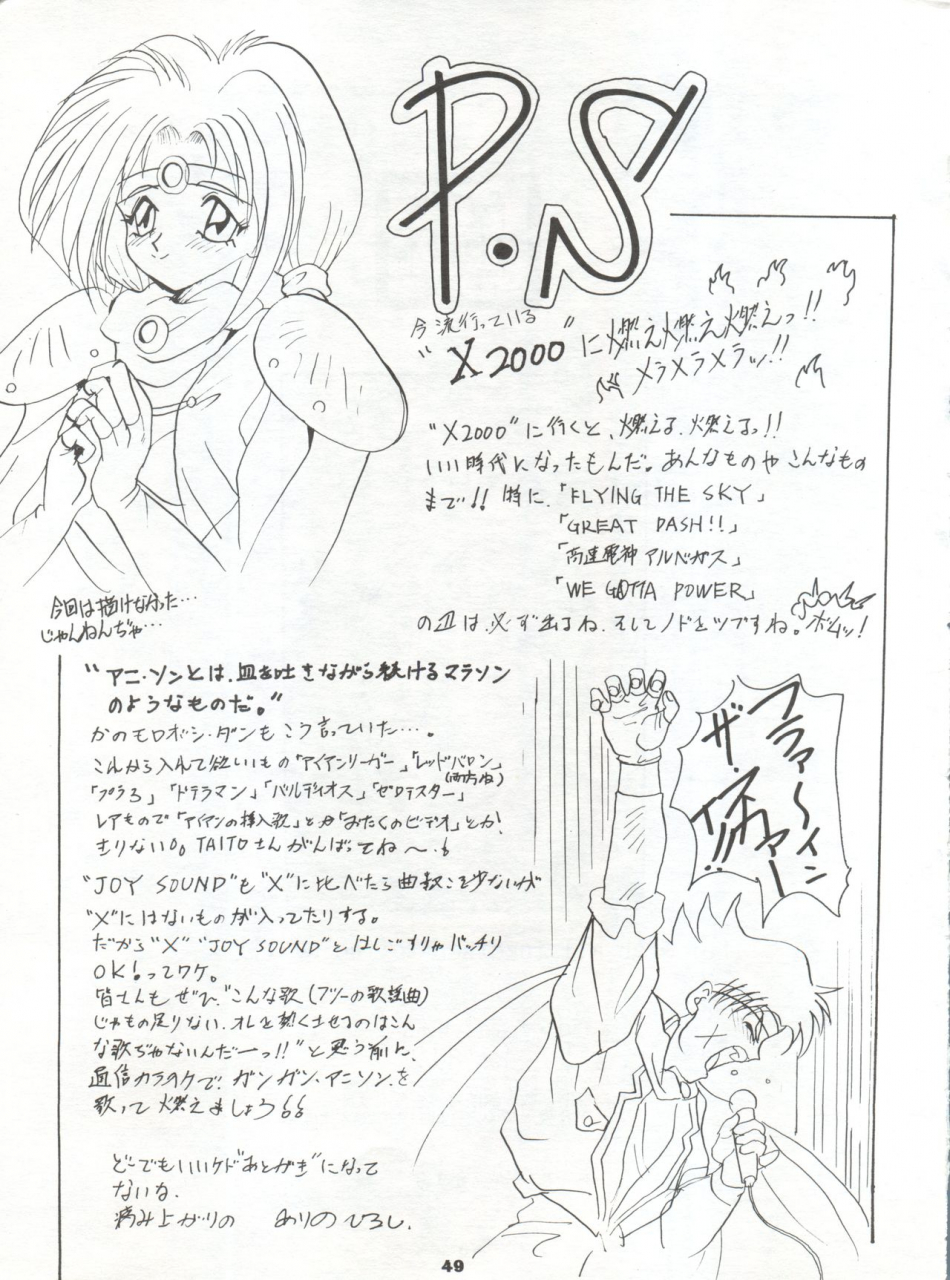 P.S
今流行っている
"X2000"に燃え燃え燃えっ!!
メラメラメラッ!!
"X2000"に行くと、燃える、燃えるっ!!
いい時代になったもんだ。あんなものやこんなもの
まで!! 特に、「FLYING THE SKY」
「GREAT DASH!!」
「高速電神アルベガス」
「WE GOTTA POWER」
の4曲は、必ず出るね、そしてノドをツブすね。ボムッ!
今回は描けなかった…
じゃんねんぢゃ…
"アニ・ソンとは、血を吐きながら続けるマラソン
のようなものだ。"
かのモロボシ・ダンもこう言っていた…。
こんから入れて欲しいもの「アイアンリーガー」「レッドバロン」
(両方ね)
「プラ3」「ドテラマン」「バルディオス」「ゼロテスター」
レアもので「アイアンの挿入歌」とか「おたくのビデオ」とか!
きりない。TAITOさんがんばってね〜!
"JOY SOUND"も"X"に比べたら曲数こそ少ないが
"X"にはないものが入ってたりする。
だから"X" "JOY SOUND"とはしごすりゃバッチリ
OK!ってワケ。
皆さんもぜひ、"こんな歌(フツーの歌謡曲)
じゃもの足りない、オレを熱くさせるのはこん
な歌ぢゃないんだーっ!!"と思う前に、
通信カラオケで、ガンガン、アニソンを
歌って燃えましょう!!
ファ〜イン
ザ・
スカァー!!
どーでもいいケド"あとがき"になって
ないな。
病み上がりの ありのひろし.
49